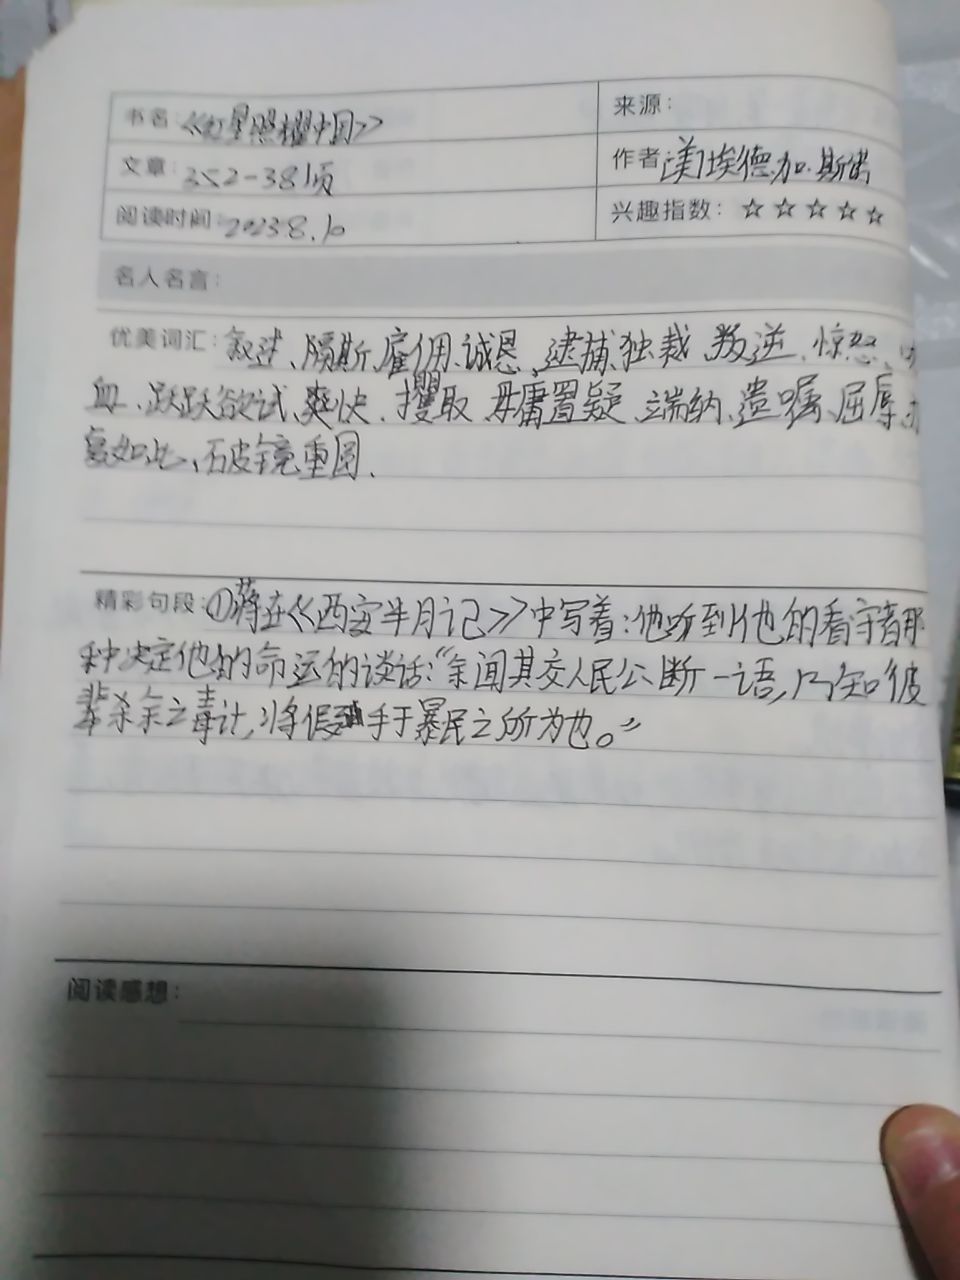 书名:《红星照耀中国》
来源:
文章:352-381页
作者:[美]埃德加.斯诺
阅读时间:2023.8.10
兴趣指数:☆☆☆☆☆
名人名言:
优美词汇:叙述、雇佣、诚恳、逮捕、独裁、叛逆、惊愁、
血、跃跃欲试、爽快、攫取、毋庸置疑、端纳、遗嘱、屈辱、
如此、破镜重圆.
精彩句段:①蒋在《西安半月记》中写着:他听到他的看守者那
种决定他的命运的谈话:“余闻其交人民公断一语,乃知彼
辈杀余之毒计,将假手于暴民之所为也。”
阅读感想: